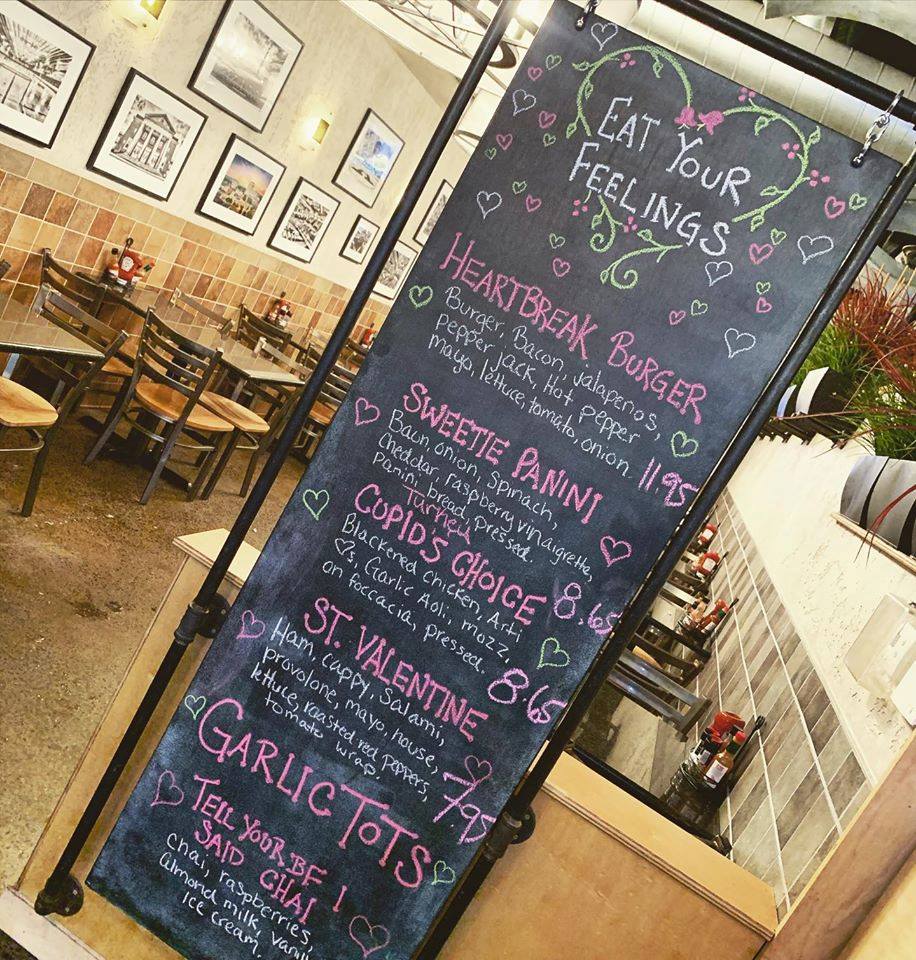 EAT YOUR
FEELINGS
HEARTBREAK BURGER
Burger, Bacon, jalapenos,
pepper jack, Hot pepper
mayo, lettuce, tomato, onion. 11.95
SWEETIE PANINI
Bacn onion, spinach,
cheddar, raspberry vinaigrette,
Turkey
panini bread, pressed.
CUPID'S CHOICE 8.65
Blackened chicken, Arti
♡s, Garlic Aoli, mozz,
on foccacia, pressed. 8.65
ST. VALENTINE
Ham, cappy, Salami,
provolone, mayo, house,
lettuce, roasted red peppers, 7.95
tomato wrap.
GARLIC TOTS
TELL YOUR BF I
SAID CHAI
chai, raspberries,
almond milk,
ICE cream.